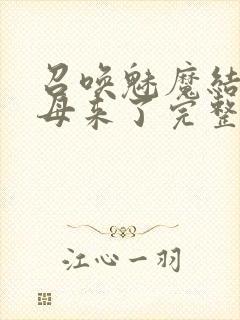 召唤魅魔结
母来了完整
江心一羽